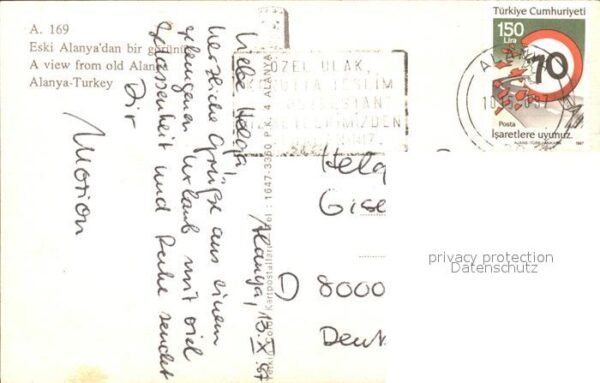 A. 169
Eski Alanya'dan bir görünüş
A view from old Alanya
Alanya-Turkey
Alanya, 13. X. 87
Liebe Helga,
herzliche Grüße aus einem
gelungenen Urlaub mit viel
Gelassenheit und Ruhe sendet
Dir
Marion
Kartpostalları Tel: 1647-3360 P.K. 4 ALANYA
ÖZEL ULAK,
TESLİM
Türkiye Cumhuriyeti
150
Lira
70
Posta
İşaretlere uyunuz.
1987
Helg
Gise
D 8000
Deut
privacy protection
Datenschutz